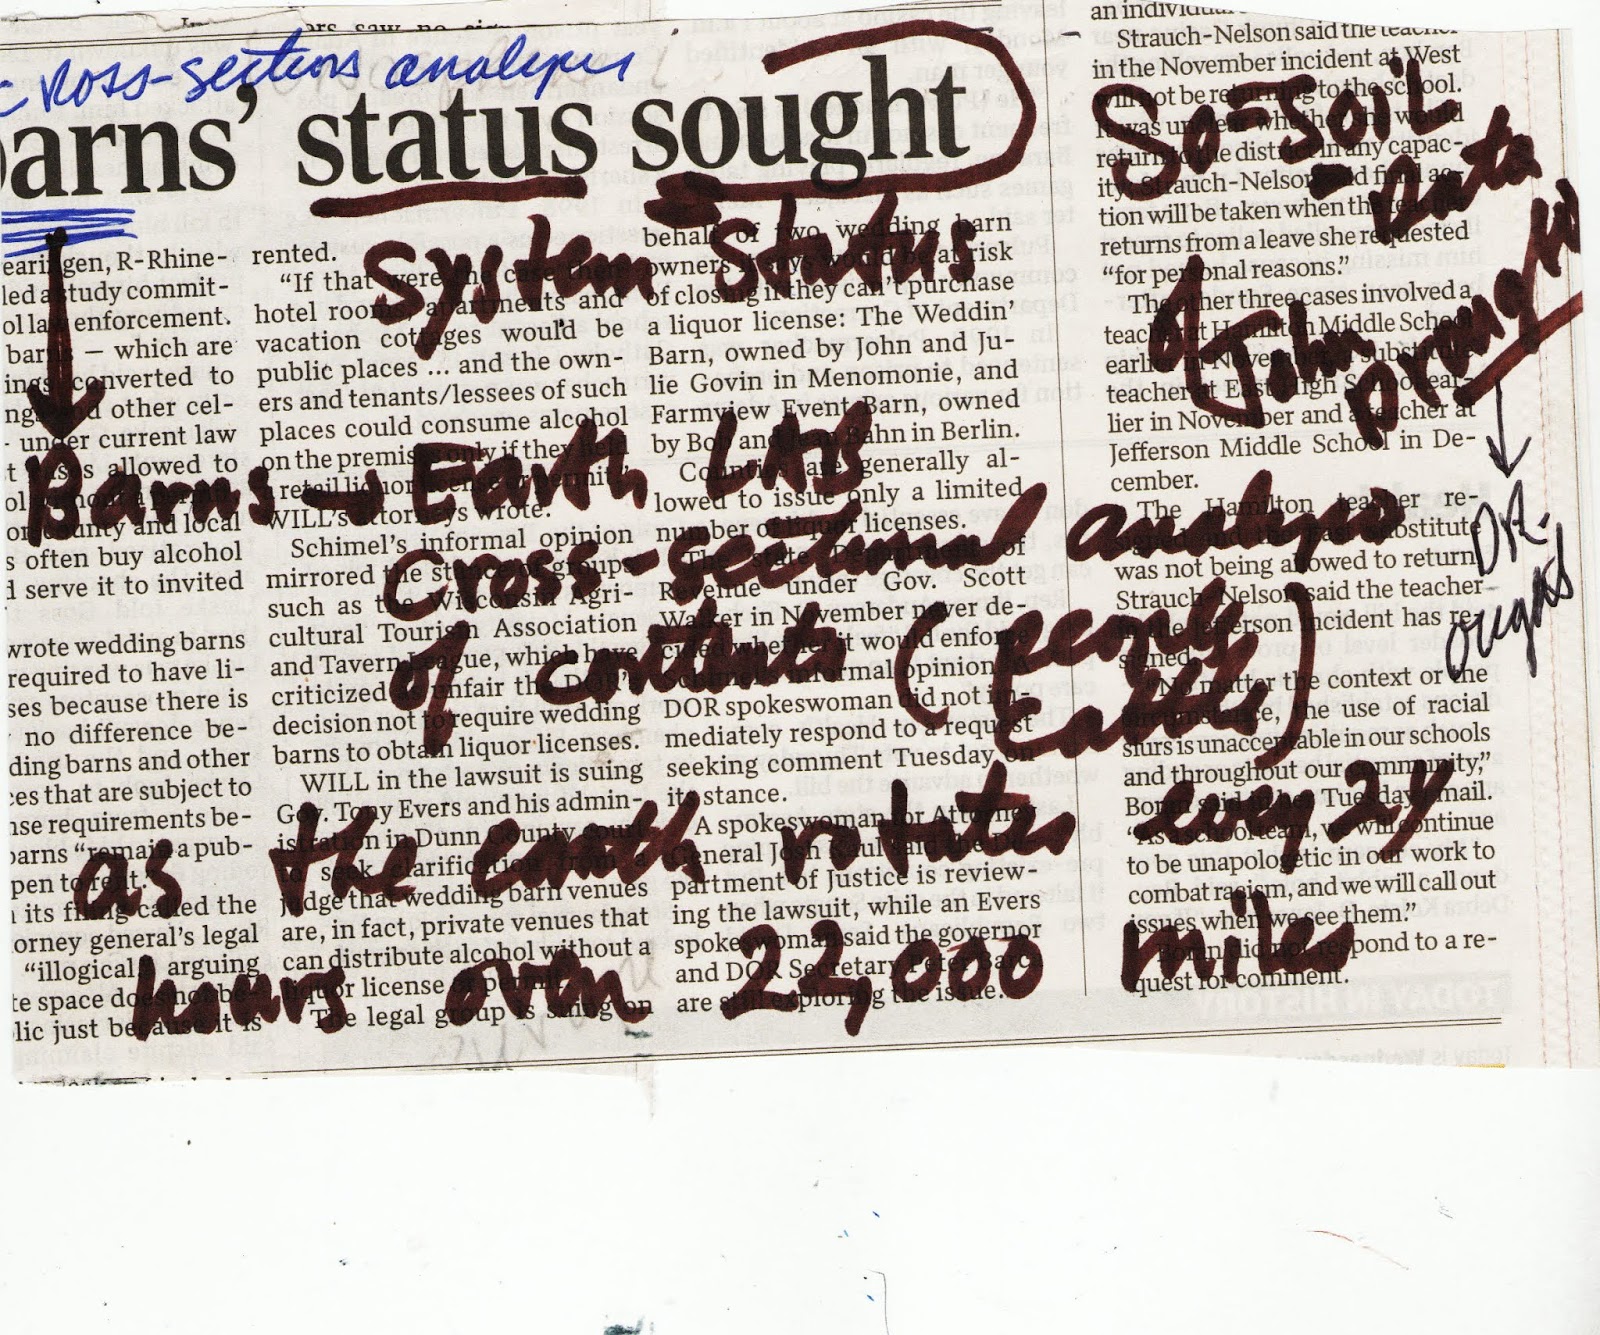 Cross-sections analysis
barns’ status sought
System status
S = SOIL
= Data
John
Barns = Earth LAB
Cross-sectional analysis
of contents (people
Earth)
as the earth rotates every 24
hours over 22,000 miles
DR.
earingen, R-Rhine-
led a study commit-
ol law enforcement.
barns — which are
ings converted to
ngs and other cel-
- under current law
t uses allowed to
ol without a permit
or county and local
s often buy alcohol
d serve it to invited
wrote wedding barns
required to have li-
ses because there is
no difference be-
ding barns and other
ces that are subject to
nse requirements be-
barns “remain a pub-
pen to rent.”
n its filing called the
orney general’s legal
“illogical,” arguing
te space does not be-
lic just because it is
rented.
“If that were the case then
hotel rooms, apartments and
vacation cottages would be
public places ... and the own-
ers and tenants/lessees of such
places could consume alcohol
on the premises only if they held
a retail liquor license or permit,”
WILL’s attorneys wrote.
Schimel’s informal opinion
mirrored the stance of groups
such as the Wisconsin Agri-
cultural Tourism Association
and Tavern League, which have
criticized as unfair the DOR’s
decision not to require wedding
barns to obtain liquor licenses.
WILL in the lawsuit is suing
Gov. Tony Evers and his admin-
istration in Dunn County court
to seek clarification from a
judge that wedding barn venues
are, in fact, private venues that
can distribute alcohol without a
liquor license or permit.
The legal group is suing on
behalf of two wedding barn
owners it says would be at risk
of closing if they can’t purchase
a liquor license: The Weddin’
Barn, owned by John and Ju-
lie Govin in Menomonie, and
Farmview Event Barn, owned
by Bob and Jean Bahn in Berlin.
Counties are generally al-
lowed to issue only a limited
number of liquor licenses.
The state Department of
Revenue under Gov. Scott
Walker in November never de-
cided whether it would enforce
Schimel’s informal opinion. A
DOR spokeswoman did not im-
mediately respond to a request
seeking comment Tuesday on
its stance.
A spokeswoman for Attorney
General Josh Kaul said the De-
partment of Justice is review-
ing the lawsuit, while an Evers
spokeswoman said the governor
and DOR Secretary Peter Barca
are still exploring the issue.
an individual
Strauch-Nelson said the teacher
in the November incident at West
will not be returning to the school.
It was unclear whether she would
return to the district in any capac-
ity. Strauch-Nelson said final ac-
tion will be taken when the teacher
returns from a leave she requested
“for personal reasons.”
The other three cases involved a
teacher at Hamilton Middle School
earlier in November, a substitute
teacher at East High School ear-
lier in November and a teacher at
Jefferson Middle School in De-
cember.
The Hamilton teacher re-
signed and the East substitute
was not being allowed to return.
Strauch-Nelson said the teacher
in the Jefferson incident has re-
signed.
“No matter the context or the
circumstance, the use of racial
slurs is unacceptable in our schools
and throughout our community,”
Boran said in her Tuesday email.
“As a school team, we will continue
to be unapologetic in our work to
combat racism, and we will call out
issues when we see them.”
Boran did not respond to a re-
quest for comment.
TODAY IN HISTORY